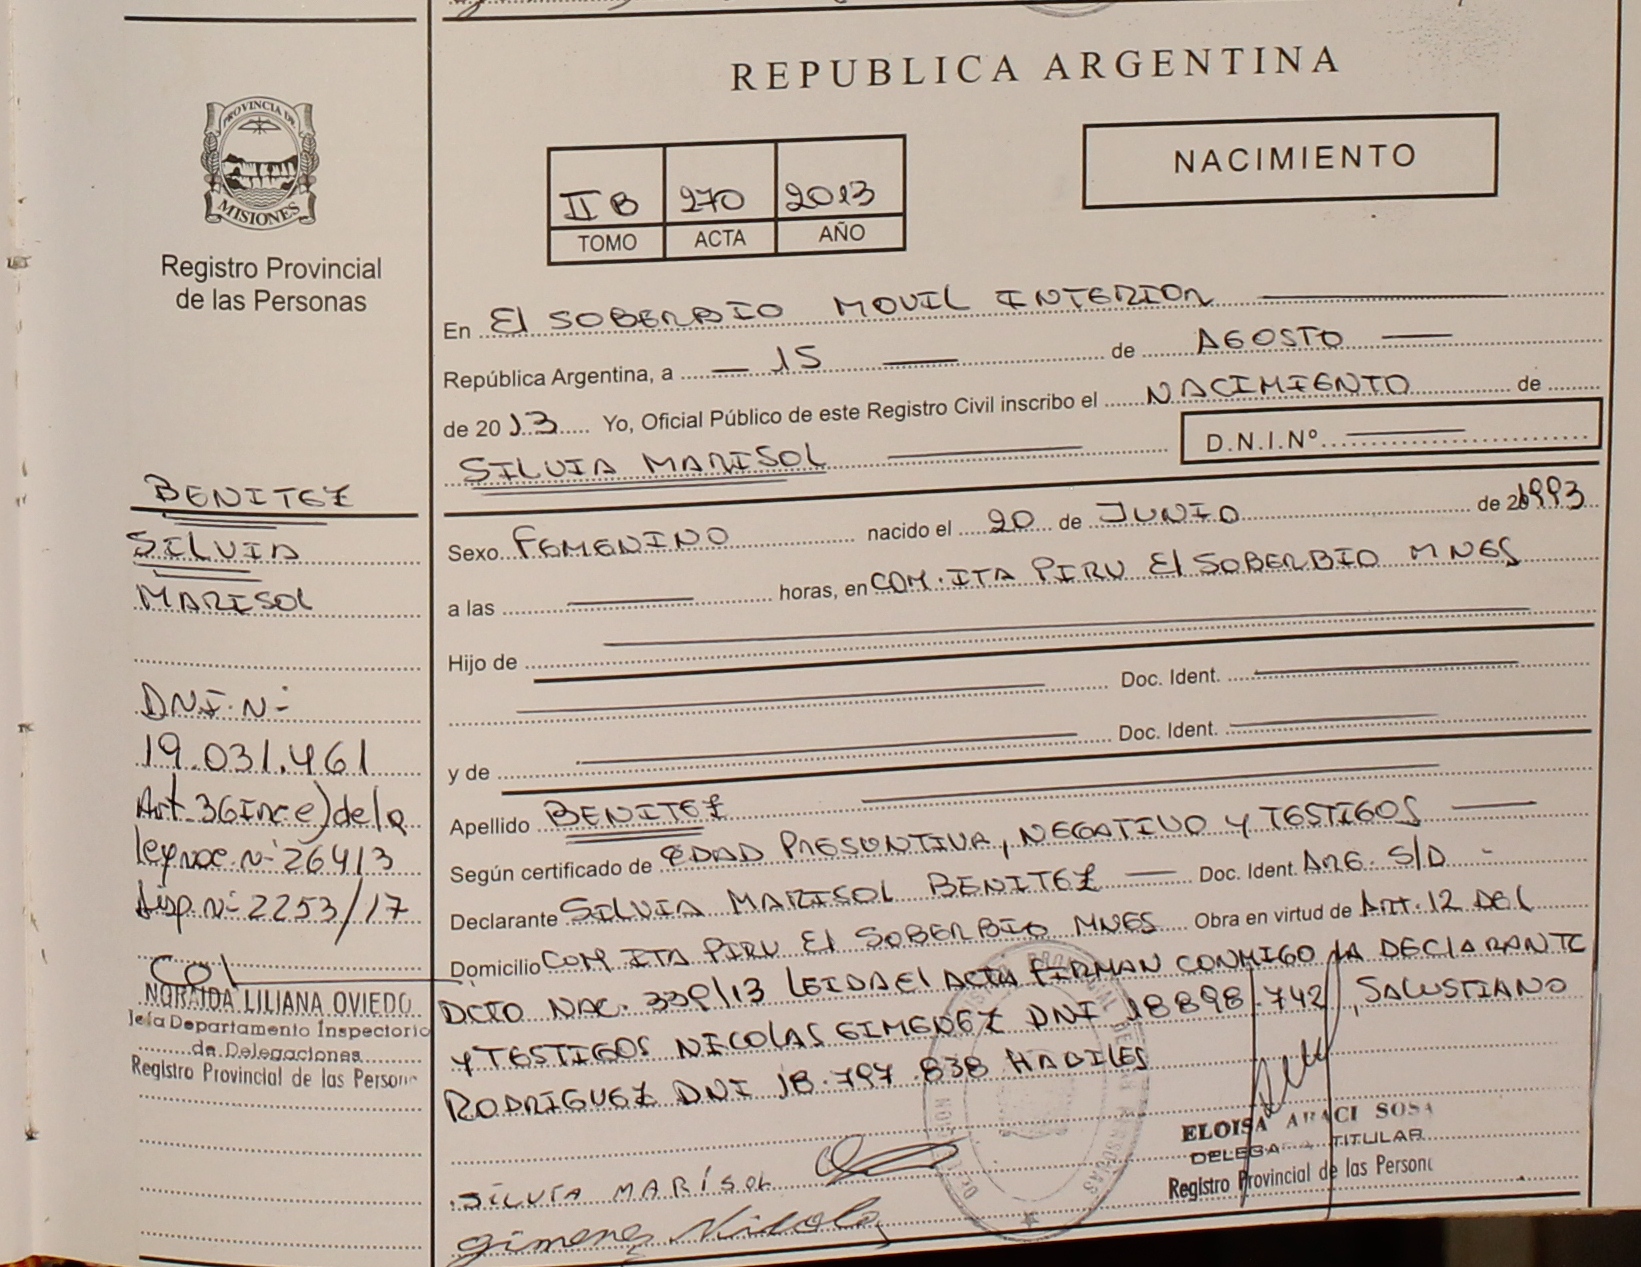 PROVINCIA DE
MISIONES
Registro Provincial
de las Personas
BENITEZ
SILVIA
MARISOL
DNI.N-
19.031.461
Art 36 inc e) de la
ley nac. n- 26413
disp. n- 2253/17
Col
NORAIDA LILIANA OVIEDO
Jefa Departamento Inspectorio
de Delegaciones
Registro Provincial de las Person
REPUBLICA ARGENTINA
II B 270 2013
TOMO ACTA AÑO
NACIMIENTO
En El SOBERBIO MOVIL INTERIOR
República Argentina, a 15 de AGOSTO
de 2013 Yo, Oficial Público de este Registro Civil inscribo el NACIMIENTO de
SILVIA MARISOL D.N.I.Nº
Sexo FEMENINO nacido el 20 de JUNIO de 1993
a las horas, en COM. ITA PIRU El SOBERBIO MNES
Hijo de
Doc. Ident.
y de Doc. Ident.
Apellido BENITEZ
Según certificado de EDAD PRESUNTIVA, NEGATIVO Y TESTIGOS
Declarante SILVIA MARISOL BENITEZ Doc. Ident. ARG. S/D -
Domicilio COM ITA PIRU El SOBERBIO MNES Obra en virtud de Art. 12 DEL
DCTO NAC. 339/13 LEIDA El ACTA FIRMAN CONMIGO lA DECLARANTE
Y TESTIGOS NICOLAS GIMENEZ DNI 18898.742, SALUSTIANO
RODRIGUEZ DNI 18.797.838 HABILES
SILVIA MARÍSOL
gimenes Nicolas
ELOISA ARACI SOSA
DELEGADA TITULAR
Registro Provincial de las Persona